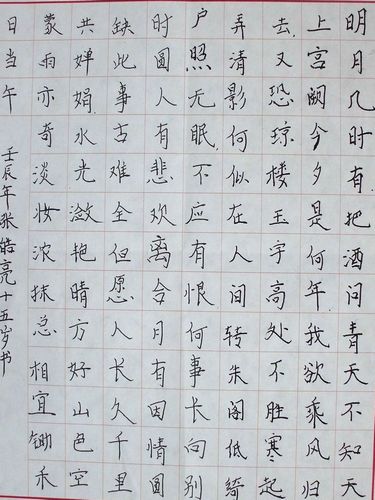 明月几时有把酒问青天不知天
上宫阙今夕是何年我欲乘风归
去又恐琼楼玉宇高处不胜寒起
弄清影何似在人间转朱阁低绮
户照无眠不应有恨何事长向别
时圆人有悲欢离合月有因情圆
缺此事古难全但愿人长久千里
共婵娟水光潋艳晴方好山色空
蒙雨亦奇淡妆浓抹总相宜锄禾
日当午
壬辰年张皓亮十五岁书